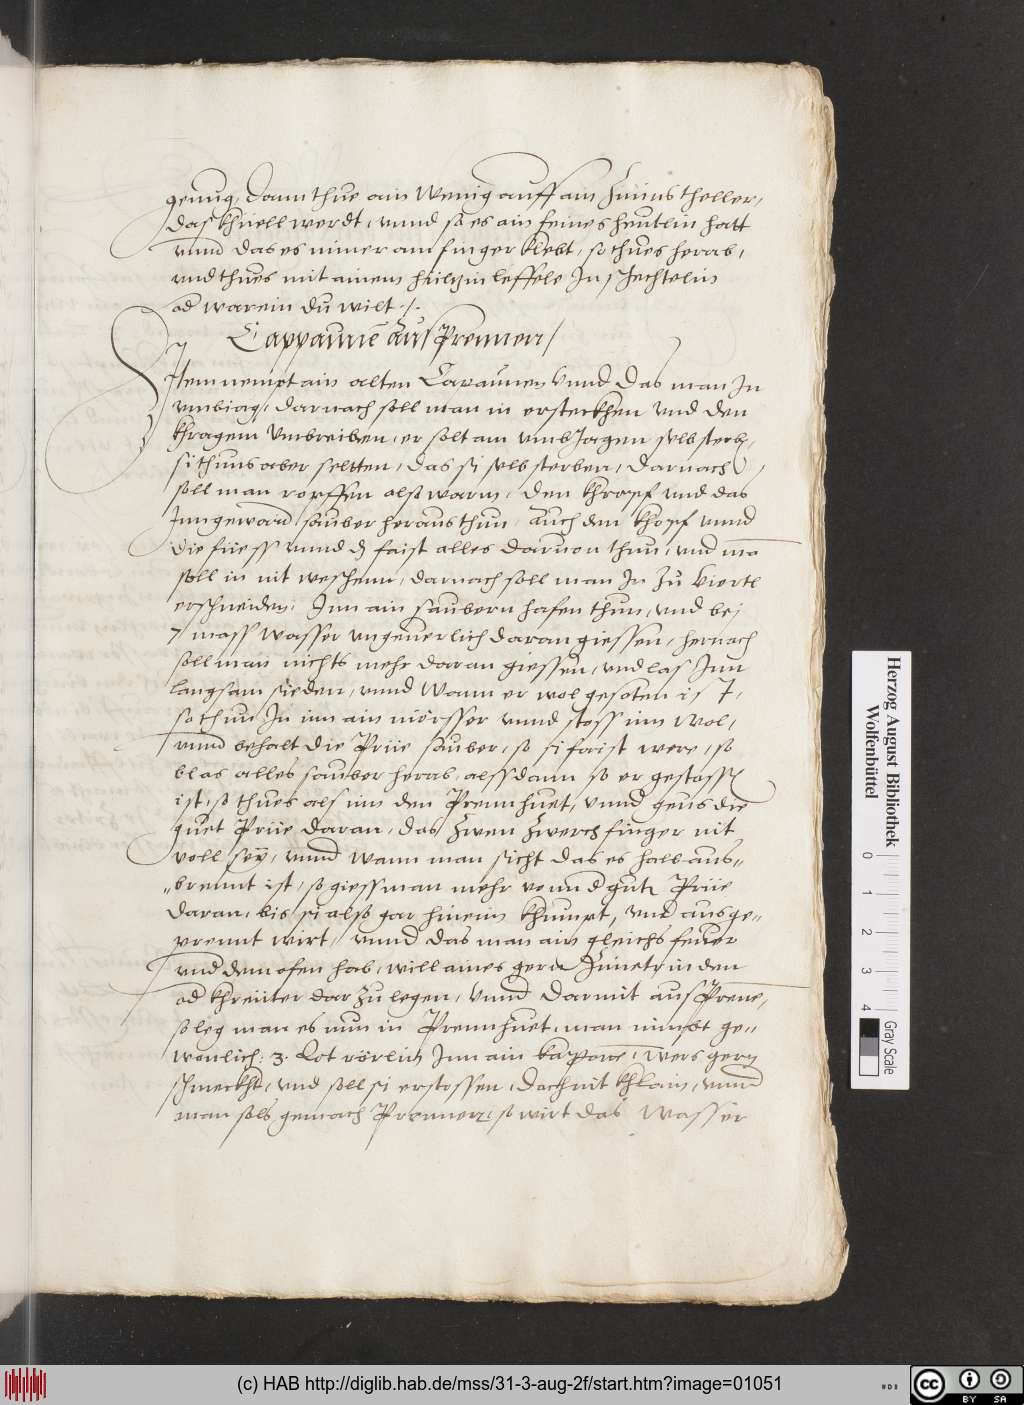 genuig, dann thue ain wenig auff ain Zinins theller,
das khüell werdt, vnnd so es ain feines heutlin hatt
vnnd das es nimer am finger klebt, so thues herab,
vnd thues mit ainem hiltzin leffele In schechtelin
od warein du wilt ./.
Cappaunē aus Prennen /
Item nempt ain alten Capaunen vnnd das man In
vmbiag, darnach soll man in ersteckhen vnd den
khragem vmbreiben, er solt am vmb Jagen selb sterb,
si thuns aber seltten, das si selb sterben, darnach
soll man ropffen also warm, den khropf vnd das
Inngewaid sauber heraus thun, auch den khopf vnnd
die füess vnnd d faist alles daruon thun, vnd mā
soll in nit weschenn, darnach soll man In Zu viertl
erschneiden, Inn ain saubern hafen thun, vnd bej
7 mass wasser vngeuerlich daran giessen, hernach
soll man nichts mehr daran giessen, vnd las Inn
langsam sieden, vnnd wann er wol gesoten ist,
so thun In inn ain mörsser vnnd stoss inn wol,
vnnd behalt die Priie sauber, so si faist were, so
blas alles sauber herab, alssdann so er gestossn
ist, so thues als inn den Prennhuet, vnnd geus die
guet Priie daran, das Zwen Zwerch finger nit
voll seÿ, vnnd wann man sicht das es halb aus-
brennt ist, so giess man mehr vonn d guten Priie
daran, bis si also gar hinein khumpt, vnd ausge-
prennt wirt, vnnd das man ain gleichs feuer
vnd dem ofen hab, will aines gern Zimetrinden
od khreüter dar Zu legen, vnnd darmit aus Prene,
so leg man es nun in Prennhuet, man nimbt ge-
wonlich: 3. Lot rörlin Inn ain kapone, wers gern
schmeckht, vnd soll si erstossen, doch nit khlain, vnnd
man sols gemach Prennen, so wirt das wasser
Herzog August Bibliothek
Wolfenbüttel
0 1 2 3 4
Gray Scale
(c) HAB http://diglib.hab.de/mss/31-3-aug-2f/start.htm?image=01051
cc BY SA